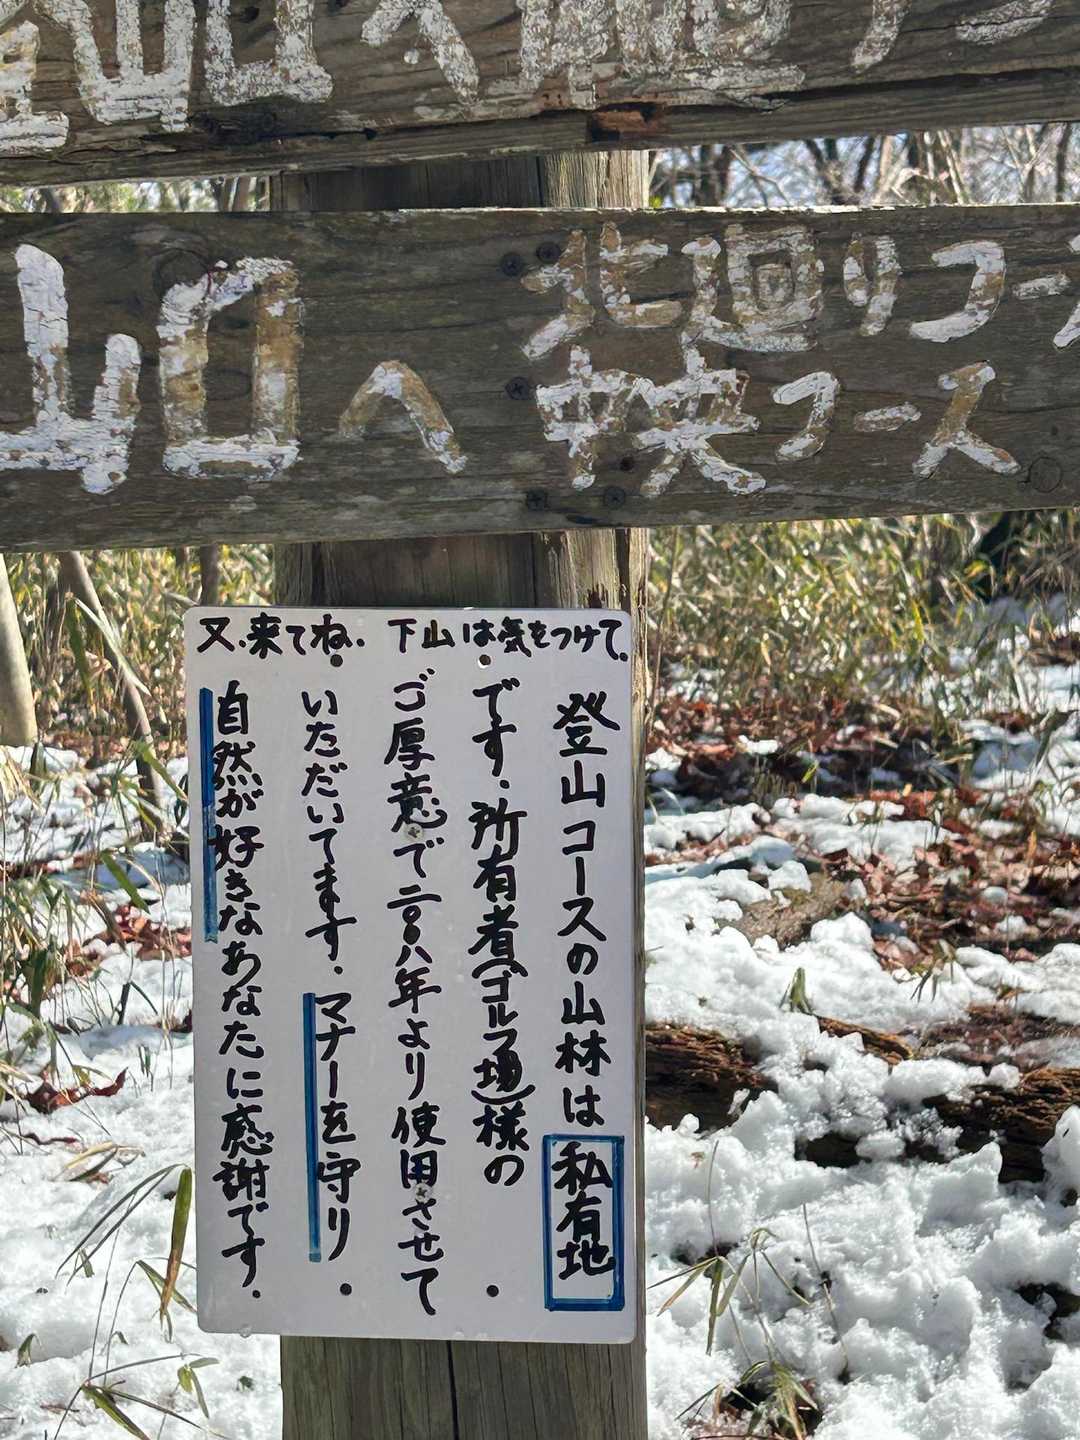 山口へ
山口へ
北廻りコー
中央コース
又、来てね. 下山は気をつけて.
登山コースの山林は私有地
です.所有者(ゴルフ場)様の
ご厚意で二〇〇八年より使用させて
いただいてます.マナーを守り
自然が好きなあなたに感謝です.